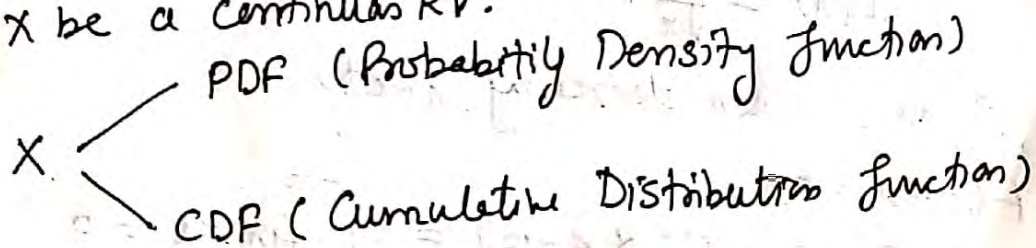 X be a Continuas RV.
PDF (Probabitily Density function)
X
CDF ( Cumulative Distribution function)